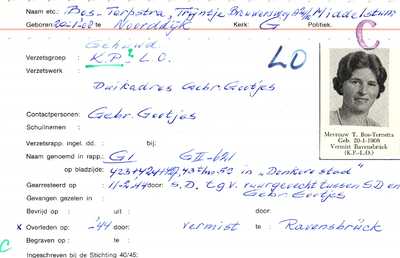 Naam etc.: Bos-Terpstra, Trijntje Brouwersweg Middelstum
Geboren: 20-1-08 te Noorddijk Kerk: G Politiek:
C
Gehuwd.
Verzetsgroep : K.P.? L.O. LO
Verzetswerk :
Duikadres Gebr. Gootjes
Contactpersonen: Gebr. Gootjes
Schuilnamen :
Mevrouw T. Bos-Terpstra
Geb. 20-1-1908
Vermist Ravensbrück
(K.P.-L.O.)
Verzetsrapp. ingel. dd. : door:
Naam genoemd in rapp.: G1 GII-621
op bladzijde: 423+424+ 437 t/m 52 in "Donkere stad"
Gearresteerd op 11-2-'44 door: S.D. t.g.v. vuurgevecht tussen S.D en
Gevangen gezeten in : Gebr. Gootjes
Bevrijd op : uit : door:
x Overleden op: -'44 door: vermist te Ravensbrück
Begraven op : te :
C
Ingeschreven bij de Stichting 40/45: